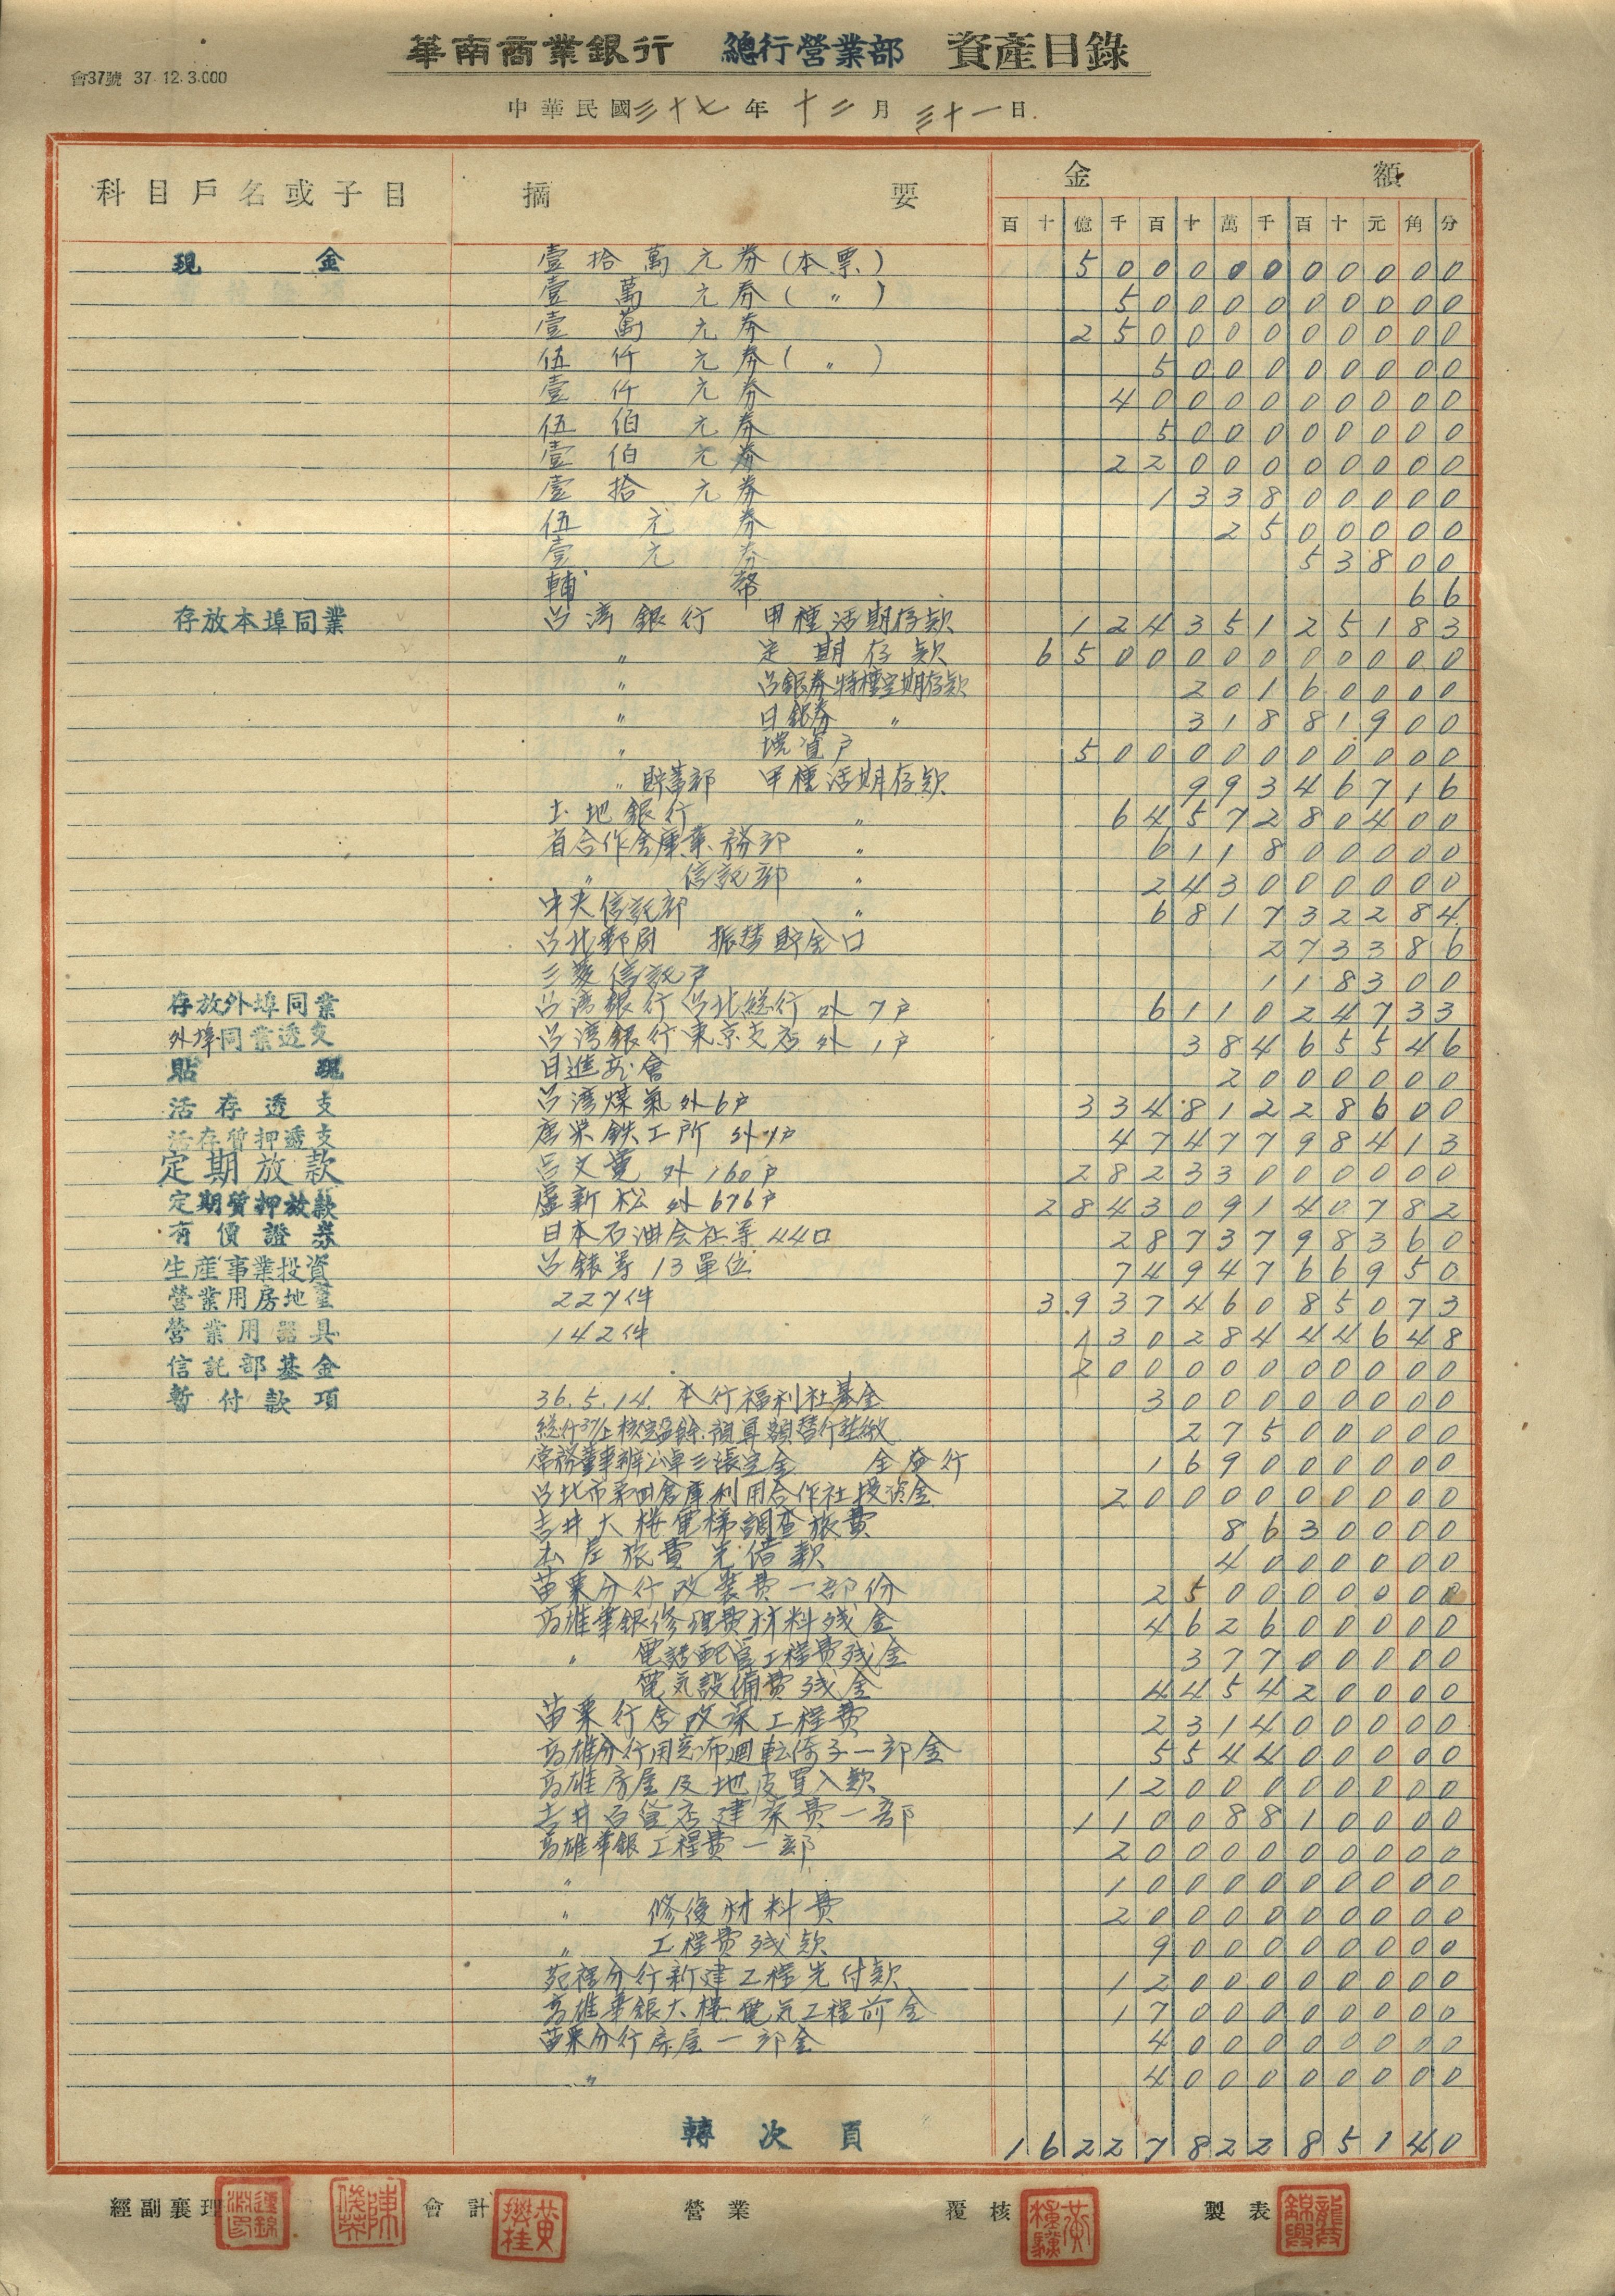 華南商業銀行 總行營業部 資產目錄
會37號 37.12.3.000
中華民國三十七年十二月三十一日
科目戶名或子目 摘要 金額
百十億千百十萬千百十元角分
現金 壹拾萬元券(本票) 50000000000
壹萬元券(〃) 5000000000
壹萬元券 25000000000
伍仟元券(〃) 500000000
壹仟元券 4000000000
伍伯元券 500000000
壹伯元券 2200000000
壹拾元券 133800000
伍元券 2500000
壹元券 53800
輔幣 66
存放本埠同業 台湾銀行 甲種活期存款 12435125183
〃 定期存款 650000000000
〃 台銀券特種定期存款 20160000
〃 日銀券 〃 31881900
〃 增資戶 50000000000
〃貯蓄部 甲種活期存款 99346716
土地銀行 〃 6457280400
省合作金庫業務部 〃 611800000
〃 信託部 〃 243000000
中央信託部 〃 681732284
台北郵局 振替貯金口 273386
三菱信託戶 118300
存放外埠同業 台湾銀行台北総行外7戶 611024733
外埠同業透支 台湾銀行東京支店外1戶 38465546
貼現 日進商會 2000000
活存透支 台湾煤氣外6戶 33481228600
活存質押透支 唐栄鉄工所外7戶 4747798413
定期放款 呂文 外160戶 28233000000
定期質押放款 盧新松外676戶 284309140782
有價證券 日本石油会社等44口 2873798360
生產事業投資 台銀等13單位 7494766950
營業用房地產 227件 393746085073
營業用器具 142件 13028444648
信託部基金 20000000000
暫付款項 36.5.14.本行福利社基金 300000000
総行37/上核定盈餘預算額替行 繳 27500000
常務董事辦公卓三張定金 全益行 169000000
台北市第四倉庫利用合作社投資金 2000000000
吉井大樓電梯調查旅費 8630000
旅費先借款 4000000
苗栗分行改裝費一部份 250000000
高雄華銀修理費材料残金 462600000
〃 電話配管工程費残金 37700000
電気設備費残金 445420000
苗栗行舍改築工程費 231400000
高雄分行用 布迴転倚子一部金 554400000
高雄房屋及地皮買入款 1200000000
吉井百貨店建築費一部 11008810000
高雄華銀工程費一部 2000000000
〃 1000000000
〃 修復材料費 2000000000
〃 工程費残款 900000000
苑裡分行新建工程先付款 1200000000
高雄華銀大樓電気工程前金 1700000000
苗栗分行房屋一部金 400000000
〃 400000000
轉次頁 1622782285140
經副襄理 會計 營業 覆核 製表
陳俊榮
黃樊桂